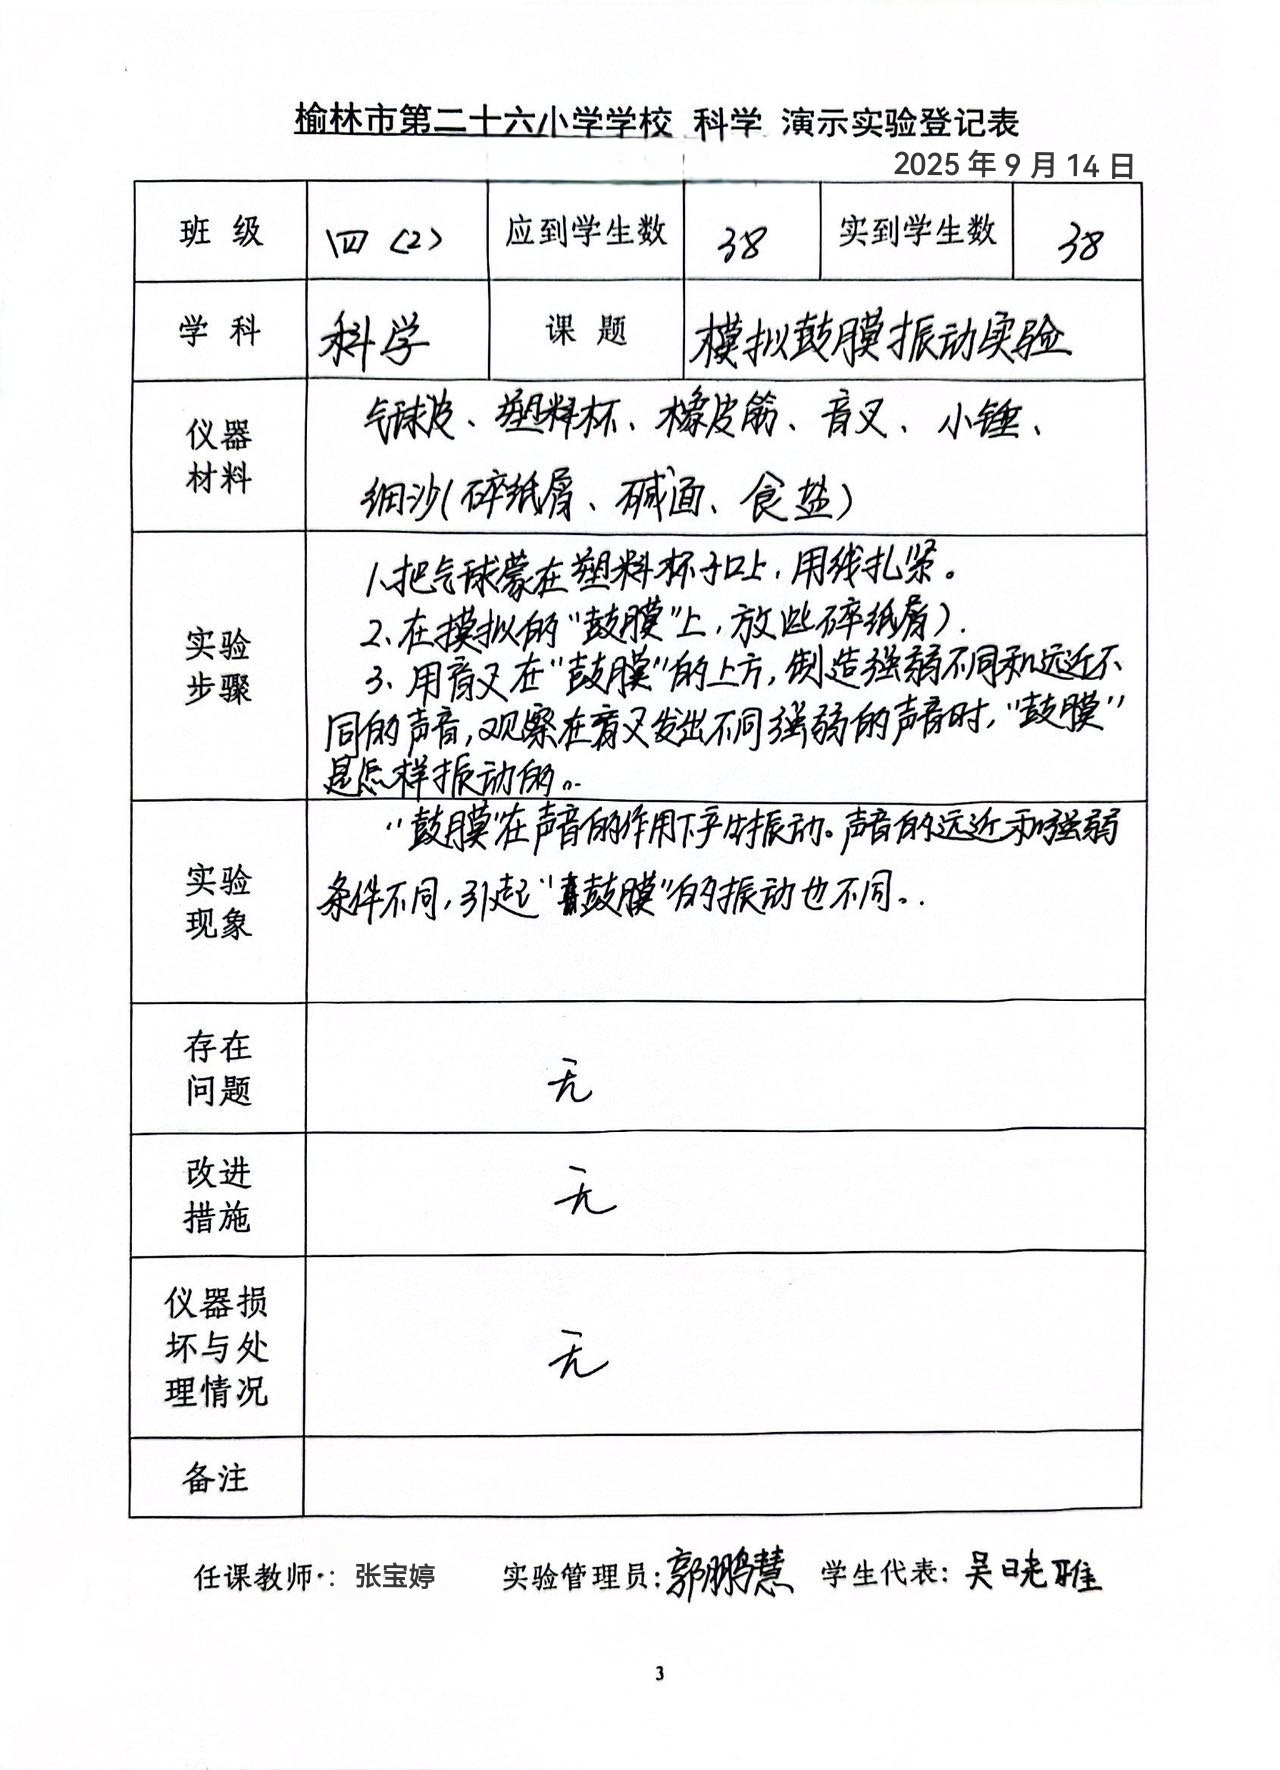 榆林市第二十六小学学校 科学 演示实验登记表
2025年9月14日
班级 四(2) 应到学生数 38 实到学生数 38
学科 科学 课题 模拟鼓膜振动实验
仪器材料
气球皮、塑料杯、橡皮筋、音叉、小锤、
细沙(碎纸屑、碱面、食盐)
实验步骤
1、把气球蒙在塑料杯子口上,用线扎紧。
2、在摸拟的“鼓膜”上,放些碎纸屑).
3、用音叉在“鼓膜”的上方,制造强弱不同和远近不
同的声音,观察在音叉发出不同强弱的声音时,“鼓膜”
是怎样振动的。
实验现象
“鼓膜”在声音的作用下产生振动。声音的远近和强弱
条件不同,引起“鼓膜”的振动也不同。
存在问题
无
改进措施
无
仪器损坏与处理情况
无
备注
任课教师:张宝婷 实验管理员:郭鹏慧 学生代表:吴晓雅
3